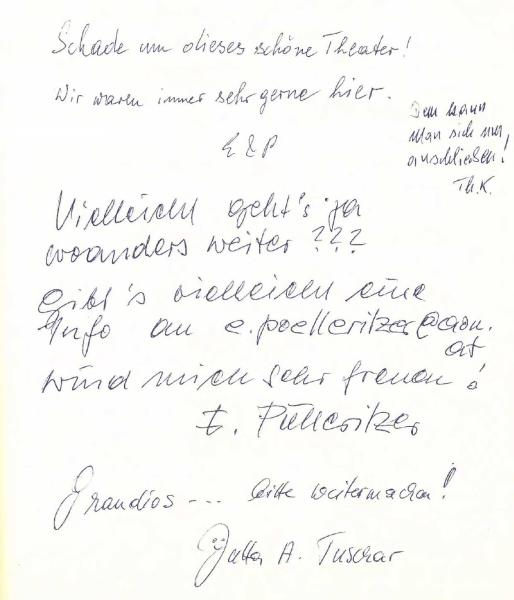 Schade um dieses schöne Theater!
Wir waren immer sehr gerne hier.
E & P
Dem kann
man sich nur
anschließen!
Th.K.
Vielleicht geht's ja
woanders weiter ???
Gibt's vielleicht eine
Info an e.poelleritzer@aon.
at
würd mich sehr freuen!
E. Pölleritzer
Grandios --- bitte weitermachen!
Jutta A. Tuscar